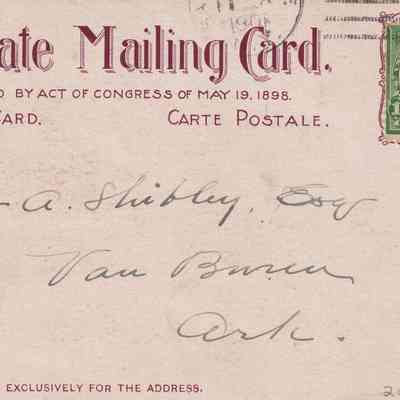 ate Mailing Card.
D BY ACT OF CONGRESS OF MAY 19, 1898.
CARD. CARTE POSTALE.
A. Shibley, Esq
Van Buren
Ark.
EXCLUSIVELY FOR THE ADDRESS.